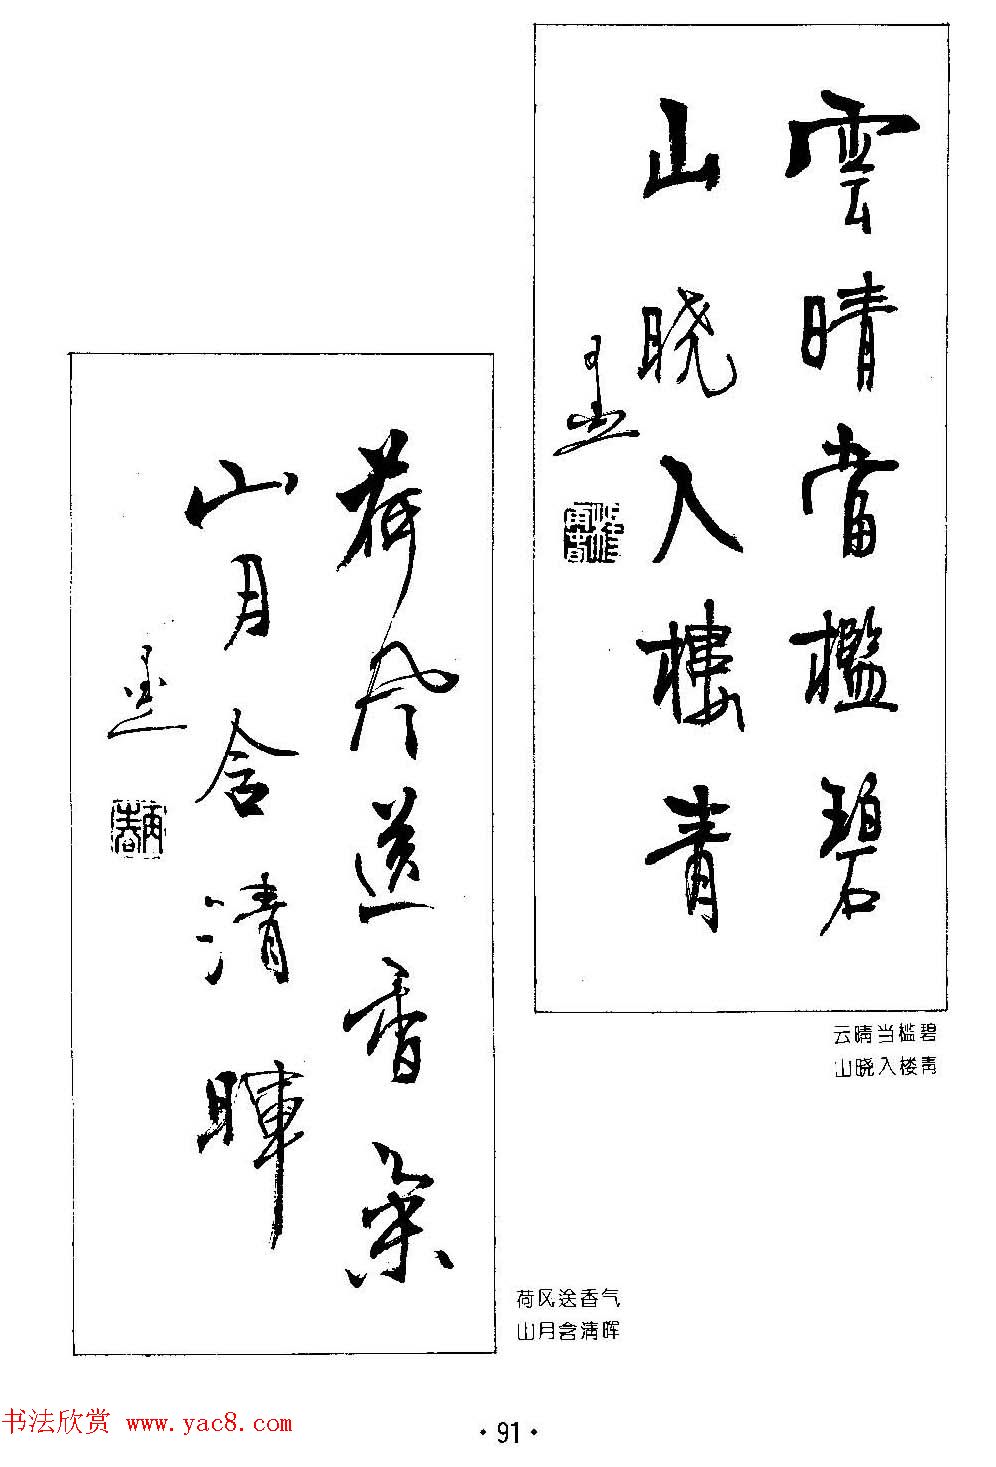 雲晴當檻碧
山晓入樓青
云晴当槛碧
山晓入楼青
荷风送香氣
山月含清暉
荷风送香气
山月含清晖
书法欣赏 www.yac8.com
·91·